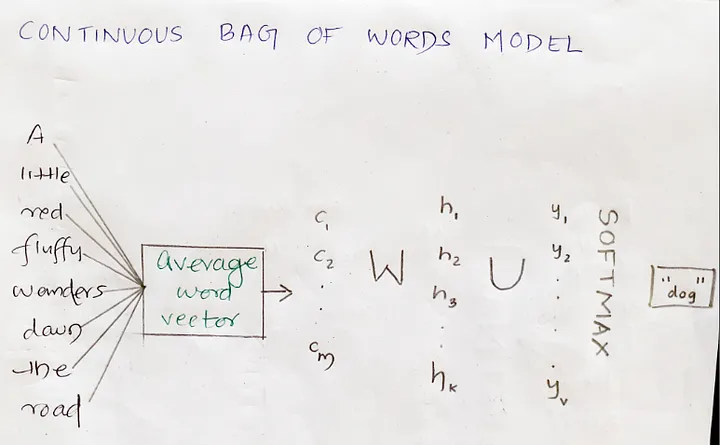 CONTINUOUS BAG OF WORDS MODEL
A
little
red
fluffy
wanders
down
the
road
average
word
vector
c₁
c₂
.
.
cₘ
W
h₁
h₂
h₃
.
.
hₖ
U
y₁
y₂
.
.
.
yᵥ
SOFTMAX
"dog"